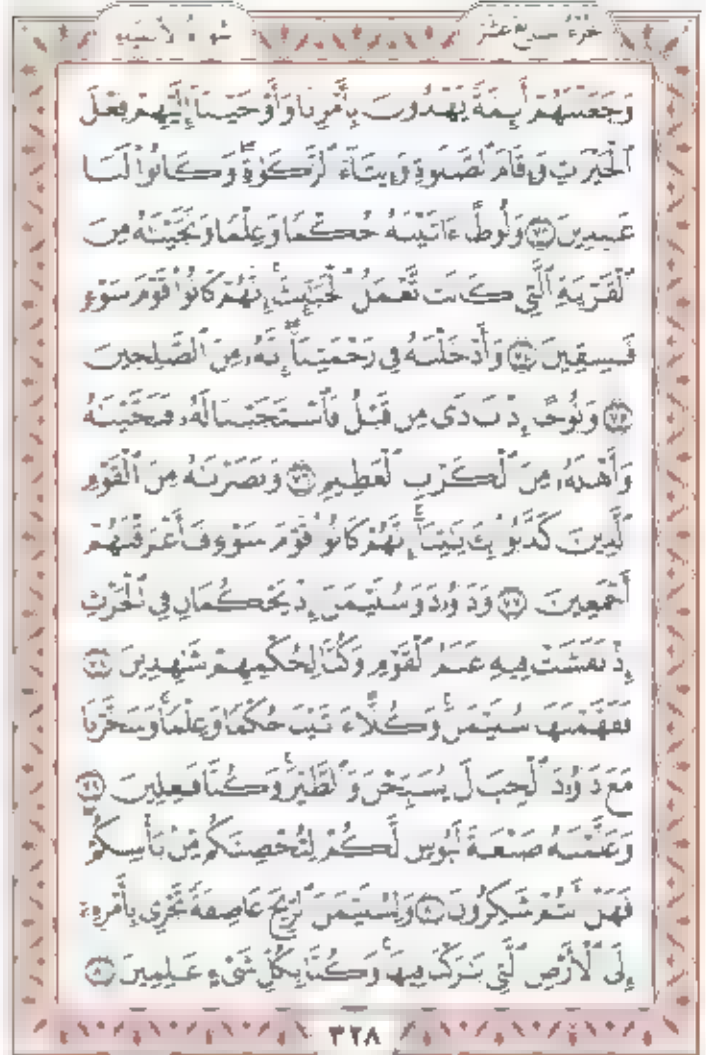 سورة الأنبياء الجزء السابع عشر
وَجَعَلْنَٰهُمْ أَئِمَّةً يَهْدُونَ بِأَمْرِنَا وَأَوْحَيْنَآ إِلَيْهِمْ فِعْلَ
ٱلْخَيْرَٰتِ وَإِقَامَ ٱلصَّلَوٰةِ وَإِيتَآءَ ٱلزَّكَوٰةِ ۖ وَكَانُوا۟ لَنَا
عَٰبِدِينَ ٧٣ وَلُوطًا ءَاتَيْنَٰهُ حُكْمًا وَعِلْمًا وَنَجَّيْنَٰهُ مِنَ
ٱلْقَرْيَةِ ٱلَّتِى كَانَت تَّعْمَلُ ٱلْخَبَٰٓئِثَ ۗ إِنَّهُمْ كَانُوا۟ قَوْمَ سَوْءٍ
فَٰسِقِينَ ٧٤ وَأَدْخَلْنَٰهُ فِى رَحْمَتِنَآ ۖ إِنَّهُۥ مِنَ ٱلصَّٰلِحِينَ
٧٥ وَنُوحًا إِذْ نَادَىٰ مِن قَبْلُ فَٱسْتَجَبْنَا لَهُۥ فَنَجَّيْنَٰهُ
وَأَهْلَهُۥ مِنَ ٱلْكَرْبِ ٱلْعَظِيمِ ٧٦ وَنَصَرْنَٰهُ مِنَ ٱلْقَوْمِ
ٱلَّذِينَ كَذَّبُوا۟ بِـَٔايَٰتِنَآ ۚ إِنَّهُمْ كَانُوا۟ قَوْمَ سَوْءٍ فَأَغْرَقْنَٰهُمْ
أَجْمَعِينَ ٧٧ وَدَاوُۥدَ وَسُلَيْمَٰنَ إِذْ يَحْكُمَانِ فِى ٱلْحَرْثِ
إِذْ نَفَشَتْ فِيهِ غَنَمُ ٱلْقَوْمِ وَكُنَّا لِحُكْمِهِمْ شَٰهِدِينَ ٧٨
فَفَهَّمْنَٰهَا سُلَيْمَٰنَ ۚ وَكُلًّا ءَاتَيْنَا حُكْمًا وَعِلْمًا ۚ وَسَخَّرْنَا
مَعَ دَاوُۥدَ ٱلْجِبَالَ يُسَبِّحْنَ وَٱلطَّيْرَ ۚ وَكُنَّا فَٰعِلِينَ ٧٩
وَعَلَّمْنَٰهُ صَنْعَةَ لَبُوسٍ لَّكُمْ لِتُحْصِنَكُم مِّنۢ بَأْسِكُمْ ۖ
فَهَلْ أَنتُمْ شَٰكِرُونَ ٨٠ وَلِسُلَيْمَٰنَ ٱلرِّيحَ عَاصِفَةً تَجْرِى بِأَمْرِهِۦٓ
إِلَى ٱلْأَرْضِ ٱلَّتِى بَٰرَكْنَا فِيهَا ۚ وَكُنَّا بِكُلِّ شَىْءٍ عَٰلِمِينَ ٨١
٣٢٨